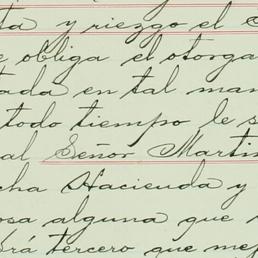 ta y riezgo el
obliga el otorga
tada en tal man
todo tiempo le s
al Señor Martin
cha Hacienda y
osa alguna que
brá tercero que mej